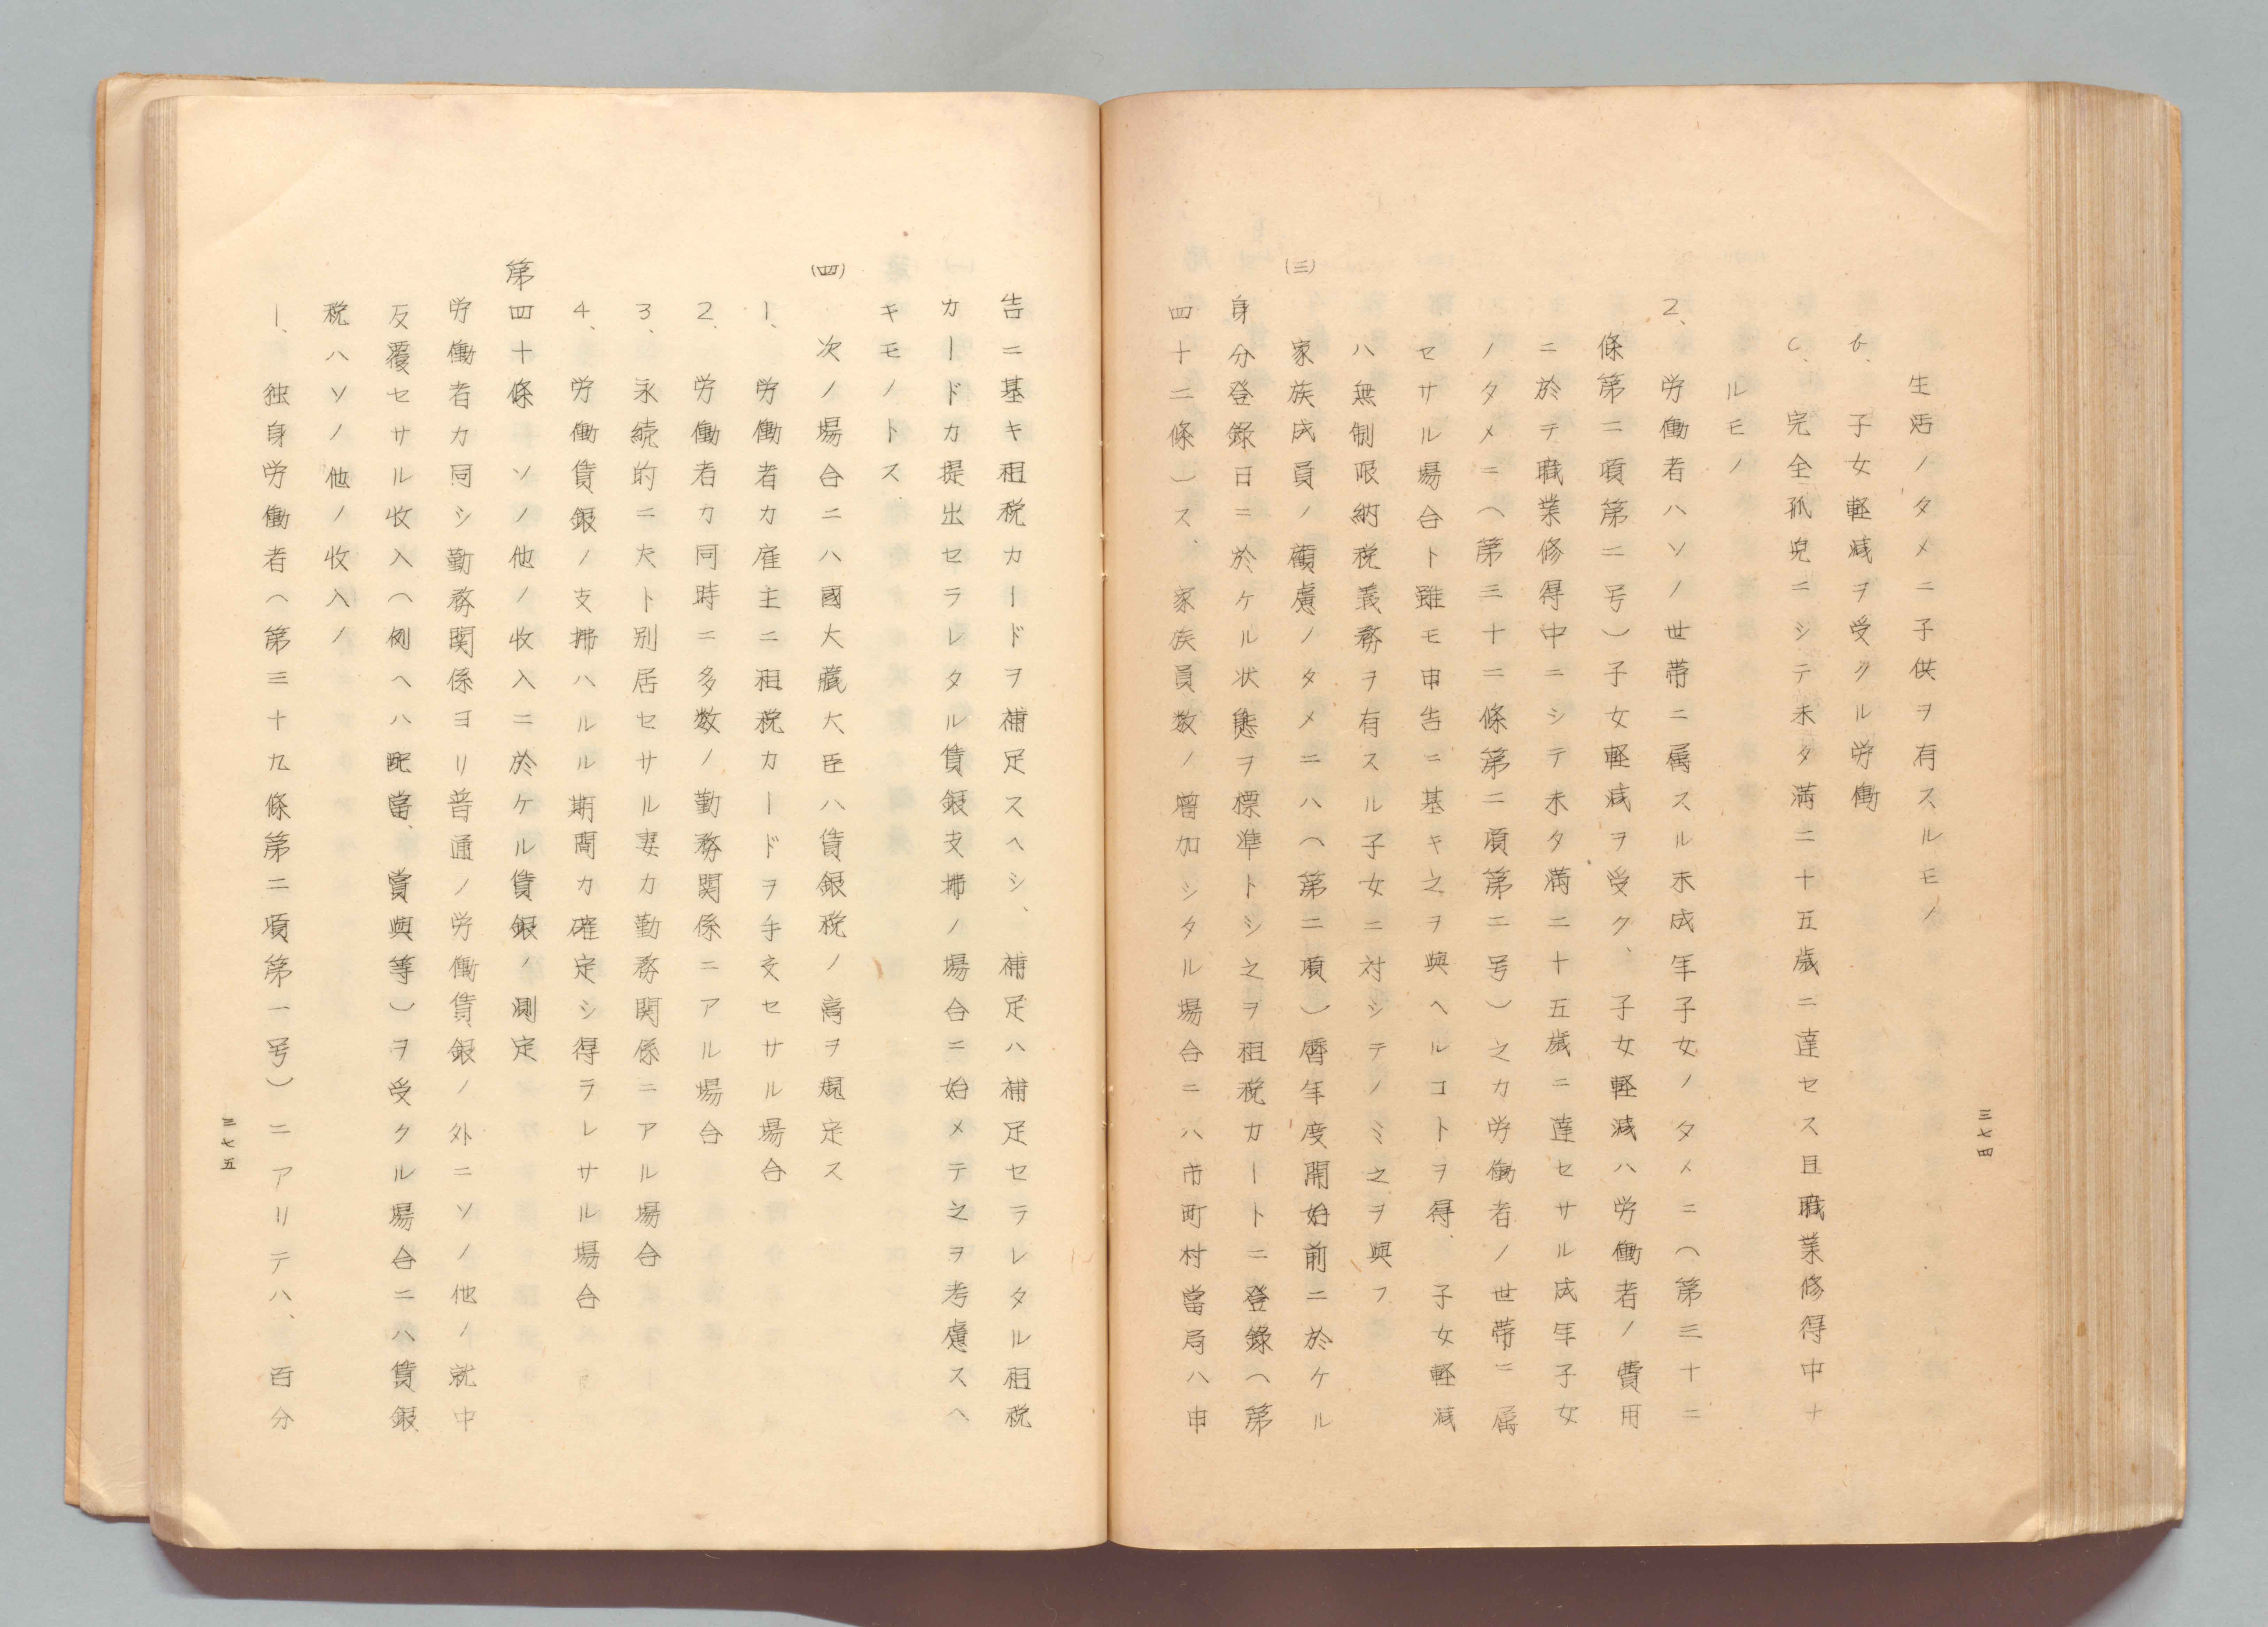 生活ノタメニ子供ヲ有スルモノ
b、子女軽減ヲ受クル労働
c、完全孤児ニシテ未タ満二十五歳ニ達セス且職業修得中ナ
ルモノ
2、労働者ハソノ世帯ニ属スル未成年子女ノタメニ(第三十二
條第二項第二号)子女軽減ヲ受ク、子女軽減ハ労働者ノ費用
ニ於テ職業修得中ニシテ未タ満二十五歳ニ達セサル成年子女
ノタメニ(第三十二條第二項第二号)之カ労働者ノ世帯ニ属
セサル場合ト雖モ申告ニ基キ之ヲ與ヘルコトヲ得、子女軽減
ハ無制限納税義務ヲ有スル子女ニ対シテノミ之ヲ與フ
(三)家族成員ノ顧慮ノタメニハ(第二項)暦年度開始前ニ於ケル
身分登録日ニ於ケル状態ヲ標準トシ之ヲ租税カートニ登録(第
四十二條)ス、家族員数ノ増加シタル場合ニハ市町村當局ハ申
三七四
告ニ基キ租税カードヲ補足スヘシ、補足ハ補足セラレタル租税
カードカ提出セラレタル賃銀支拂ノ場合ニ始メテ之ヲ考慮スヘ
キモノトス
(四)次ノ場合ニハ國大藏大臣ハ賃銀税ノ高ヲ規定ス
1、労働者カ雇主ニ租税カードヲ手交セサル場合
2、労働者カ同時ニ多数ノ勤務関係ニアル場合
3、永続的ニ夫ト別居セサル妻カ勤務関係ニアル場合
4、労働賃銀ノ支拂ハルル期間カ確定シ得ラレサル場合
第四十條 ソノ他ノ收入ニ於ケル賃銀ノ測定
労働者カ同シ勤務関係ヨリ普通ノ労働賃銀ノ外ニソノ他ノ就中
反覆セサル收入(例ヘハ配當、賞與等)ヲ受クル場合ニハ賃銀
税ハソノ他ノ收入ノ
1、独身労働者(第三十九條第二項第一号)ニアリテハ、百分
三七五